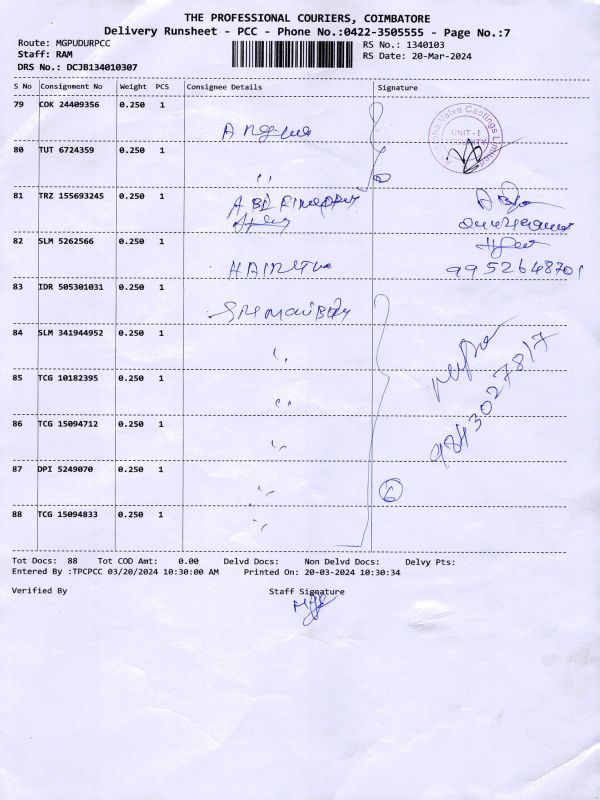 THE PROFESSIONAL COURIERS, COIMBATORE
Delivery Runsheet - PCC - Phone No.:0422-3505555 - Page No.:7
Route: MGPUDURPCC
RS No.: 1340103
Staff: RAM
RS Date: 20-Mar-2024
DRS No.: DCJB134010307
S No Consignment No Weight PCS Consignee Details Signature
79 COK 24409356 0.250 1
Valve Castings Limited
UNIT-I
80 TUT 6724359 0.250 1 "
2
81 TRZ 155693245 0.250 1
82 SLM 5262566 0.250 1
9952648701
83 IDR 505301031 0.250 1
84 SLM 341944952 0.250 1 "
85 TCG 10182395 0.250 1 "
9843027817
86 TCG 15094712 0.250 1 "
87 DPI 5249070 0.250 1 "
6
88 TCG 15094833 0.250 1 "
Tot Docs: 88 Tot COD Amt: 0.00 Delvd Docs: Non Delvd Docs: Delvy Pts:
Entered By :TPCPCC 03/20/2024 10:30:00 AM Printed On: 20-03-2024 10:30:34
Verified By Staff Signature